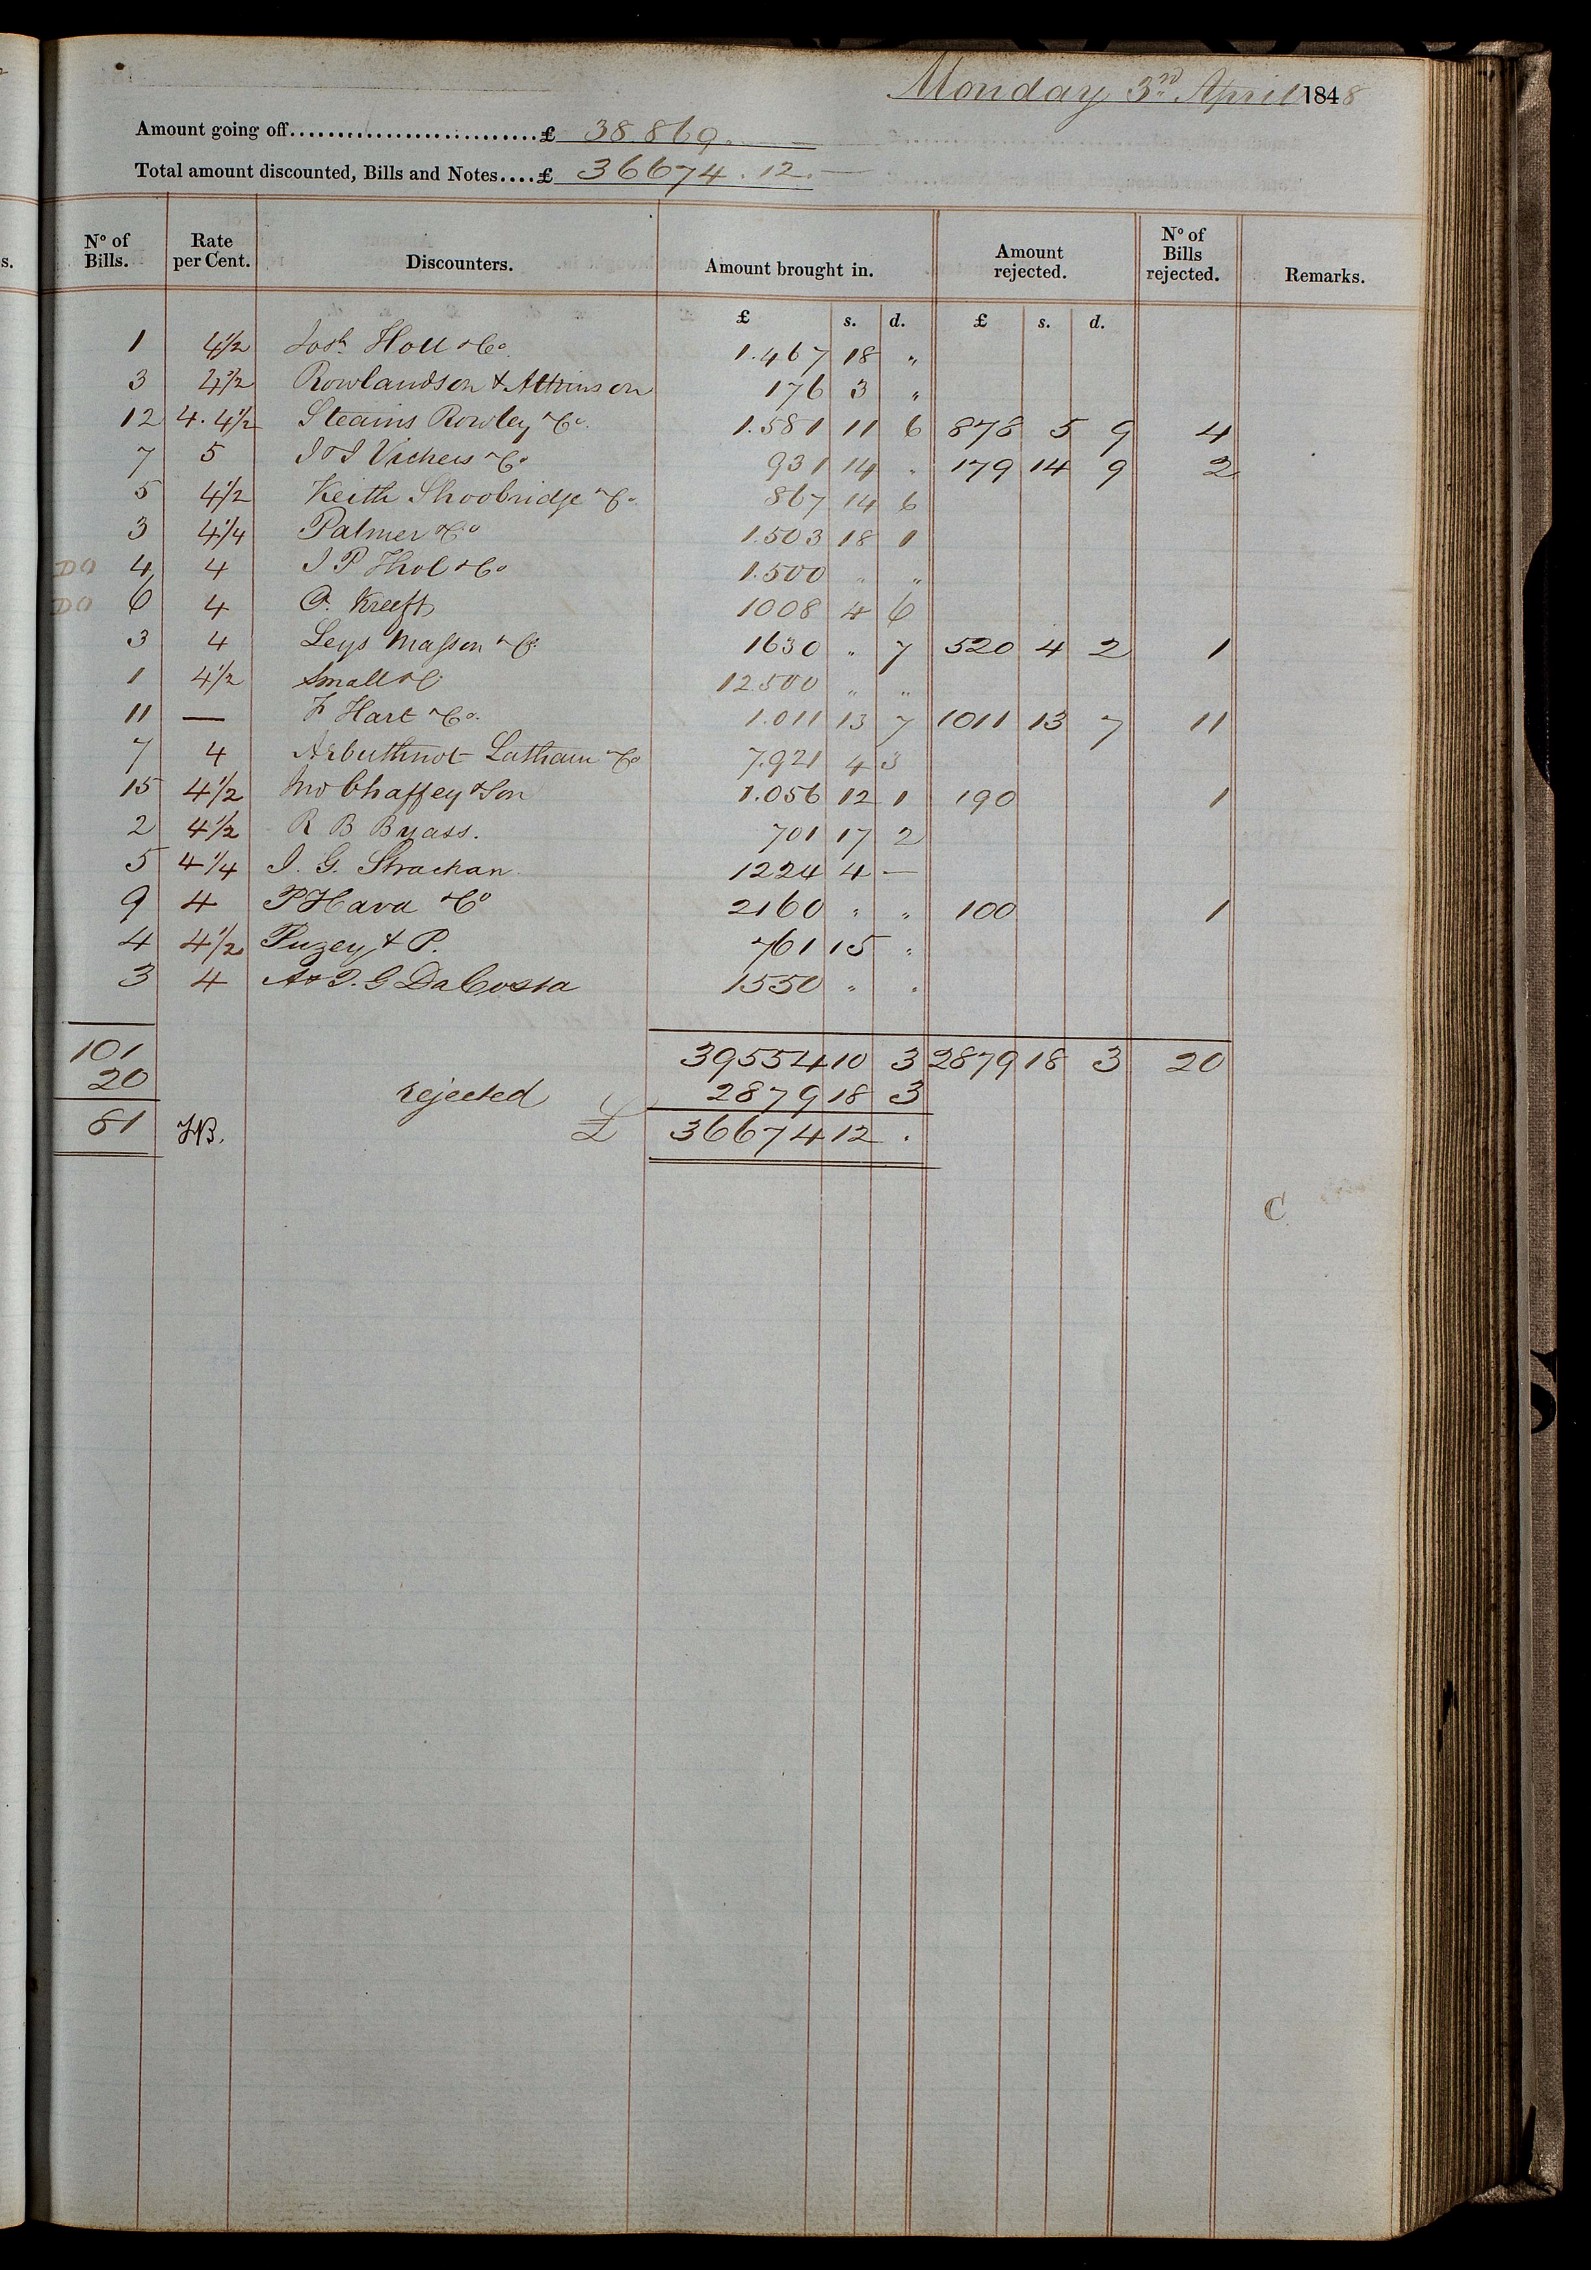 Monday 3rd April 1848
Amount going off £ 38.869
Total amount discounted, Bills and Notes £ 36674.12.—
No of Bills. Rate per Cent. Discounters. Amount brought in. Amount rejected. No of Bills rejected. Remarks.
£ s. d. £ s. d.
1 4½ Josh Holl & Co 1.467 18 "
3 4½ Rowlandson & Atkinson 176 3 "
12 4.4½ Steains Rowley & Co. 1.581 11 6 878 5 9 4
7 5 J & J Vickers & Co 931 14 " 179 14 9 2
5 4½ Keith Shoobridge & Co 867 14 6
3 4¼ Palmer & Co 1.503 18 1
DO 4 4 J P & Co 1.500 " "
DO 6 4 Kreeft 1008 4 6
3 4 Leys Masson & Co 1630 " 7 520 4 2 1
1 4½ Small & C 12.500 " "
11 — F Hart & Co. 1.011 13 7 1011 13 7 11
7 4 Arbuthnot Latham & Co 7.921 4 3
15 4½ Jno Chaffey & Son 1.056 12 1 190 1
2 4½ R B Byass. 701 17 2
5 4¼ J. G. Strachan 1224 4 —
9 4 P Hava & Co 2160 " " 100 1
4 4½ Puzey & P. 761 15 "
3 4 A & J. G Da Costa 1550 " "
101 39554 10 3 2879 18 3 20
20 rejected 2879 18 3
81 £ 36674 12 .
C